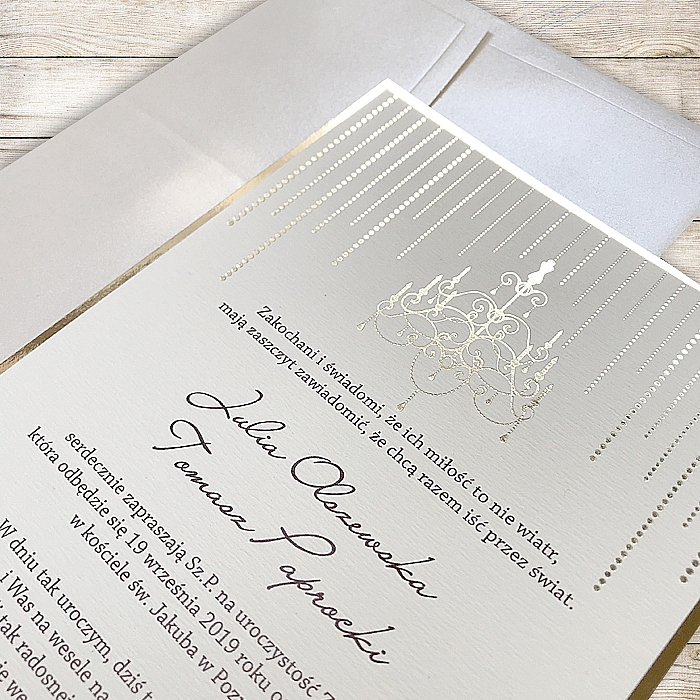 Zakochani i świadomi, że ich miłość to nie wiatr,
mają zaszczyt zawiadomić, że chcą razem iść przez świat.
Julia Olszewska
Tomasz Paprocki
serdecznie zapraszają Sz. P. na uroczystość
która odbędzie się 19 września 2019 roku o
w kościele św. Jakuba w
W dniu tak uroczym, dziś
i Was na wesele
tak radosnej